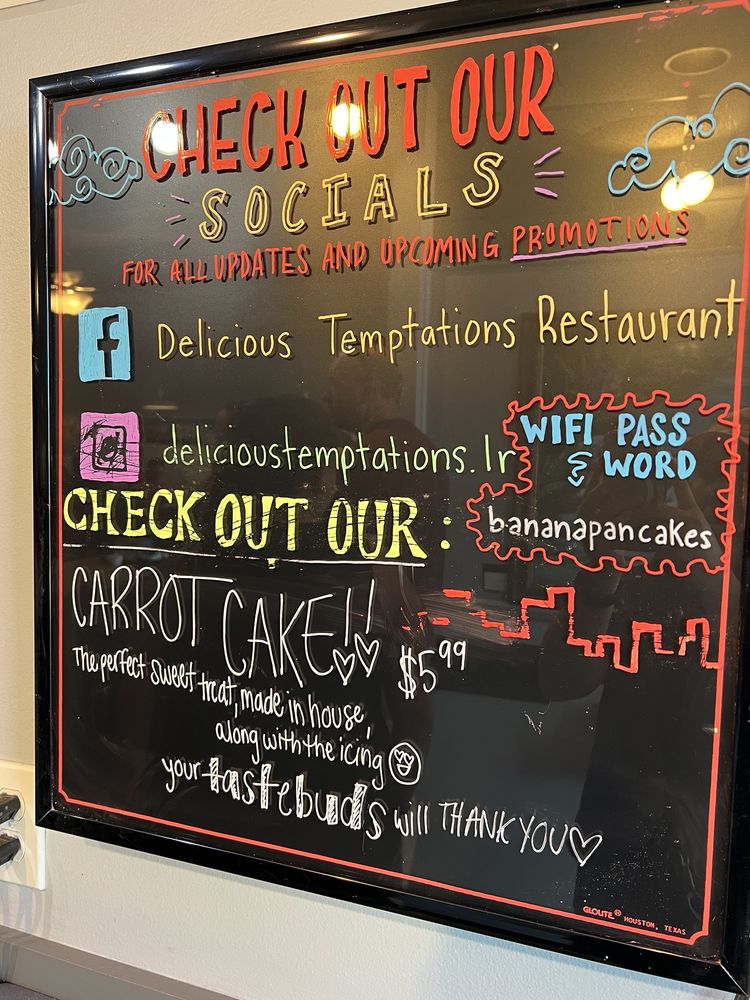 CHECK OUT OUR
SOCIALS
FOR ALL UPDATES AND UPCOMING PROMOTIONS
f Delicious Temptations Restaurant
delicioustemptations.lr
WIFI PASS
WORD
bananapancakes
CHECK OUT OUR:
CARROT CAKE!!
$5.99
The perfect sweet treat, made in house,
along with the icing
your tastebuds will THANK YOU
GLOLITE® HOUSTON, TEXAS